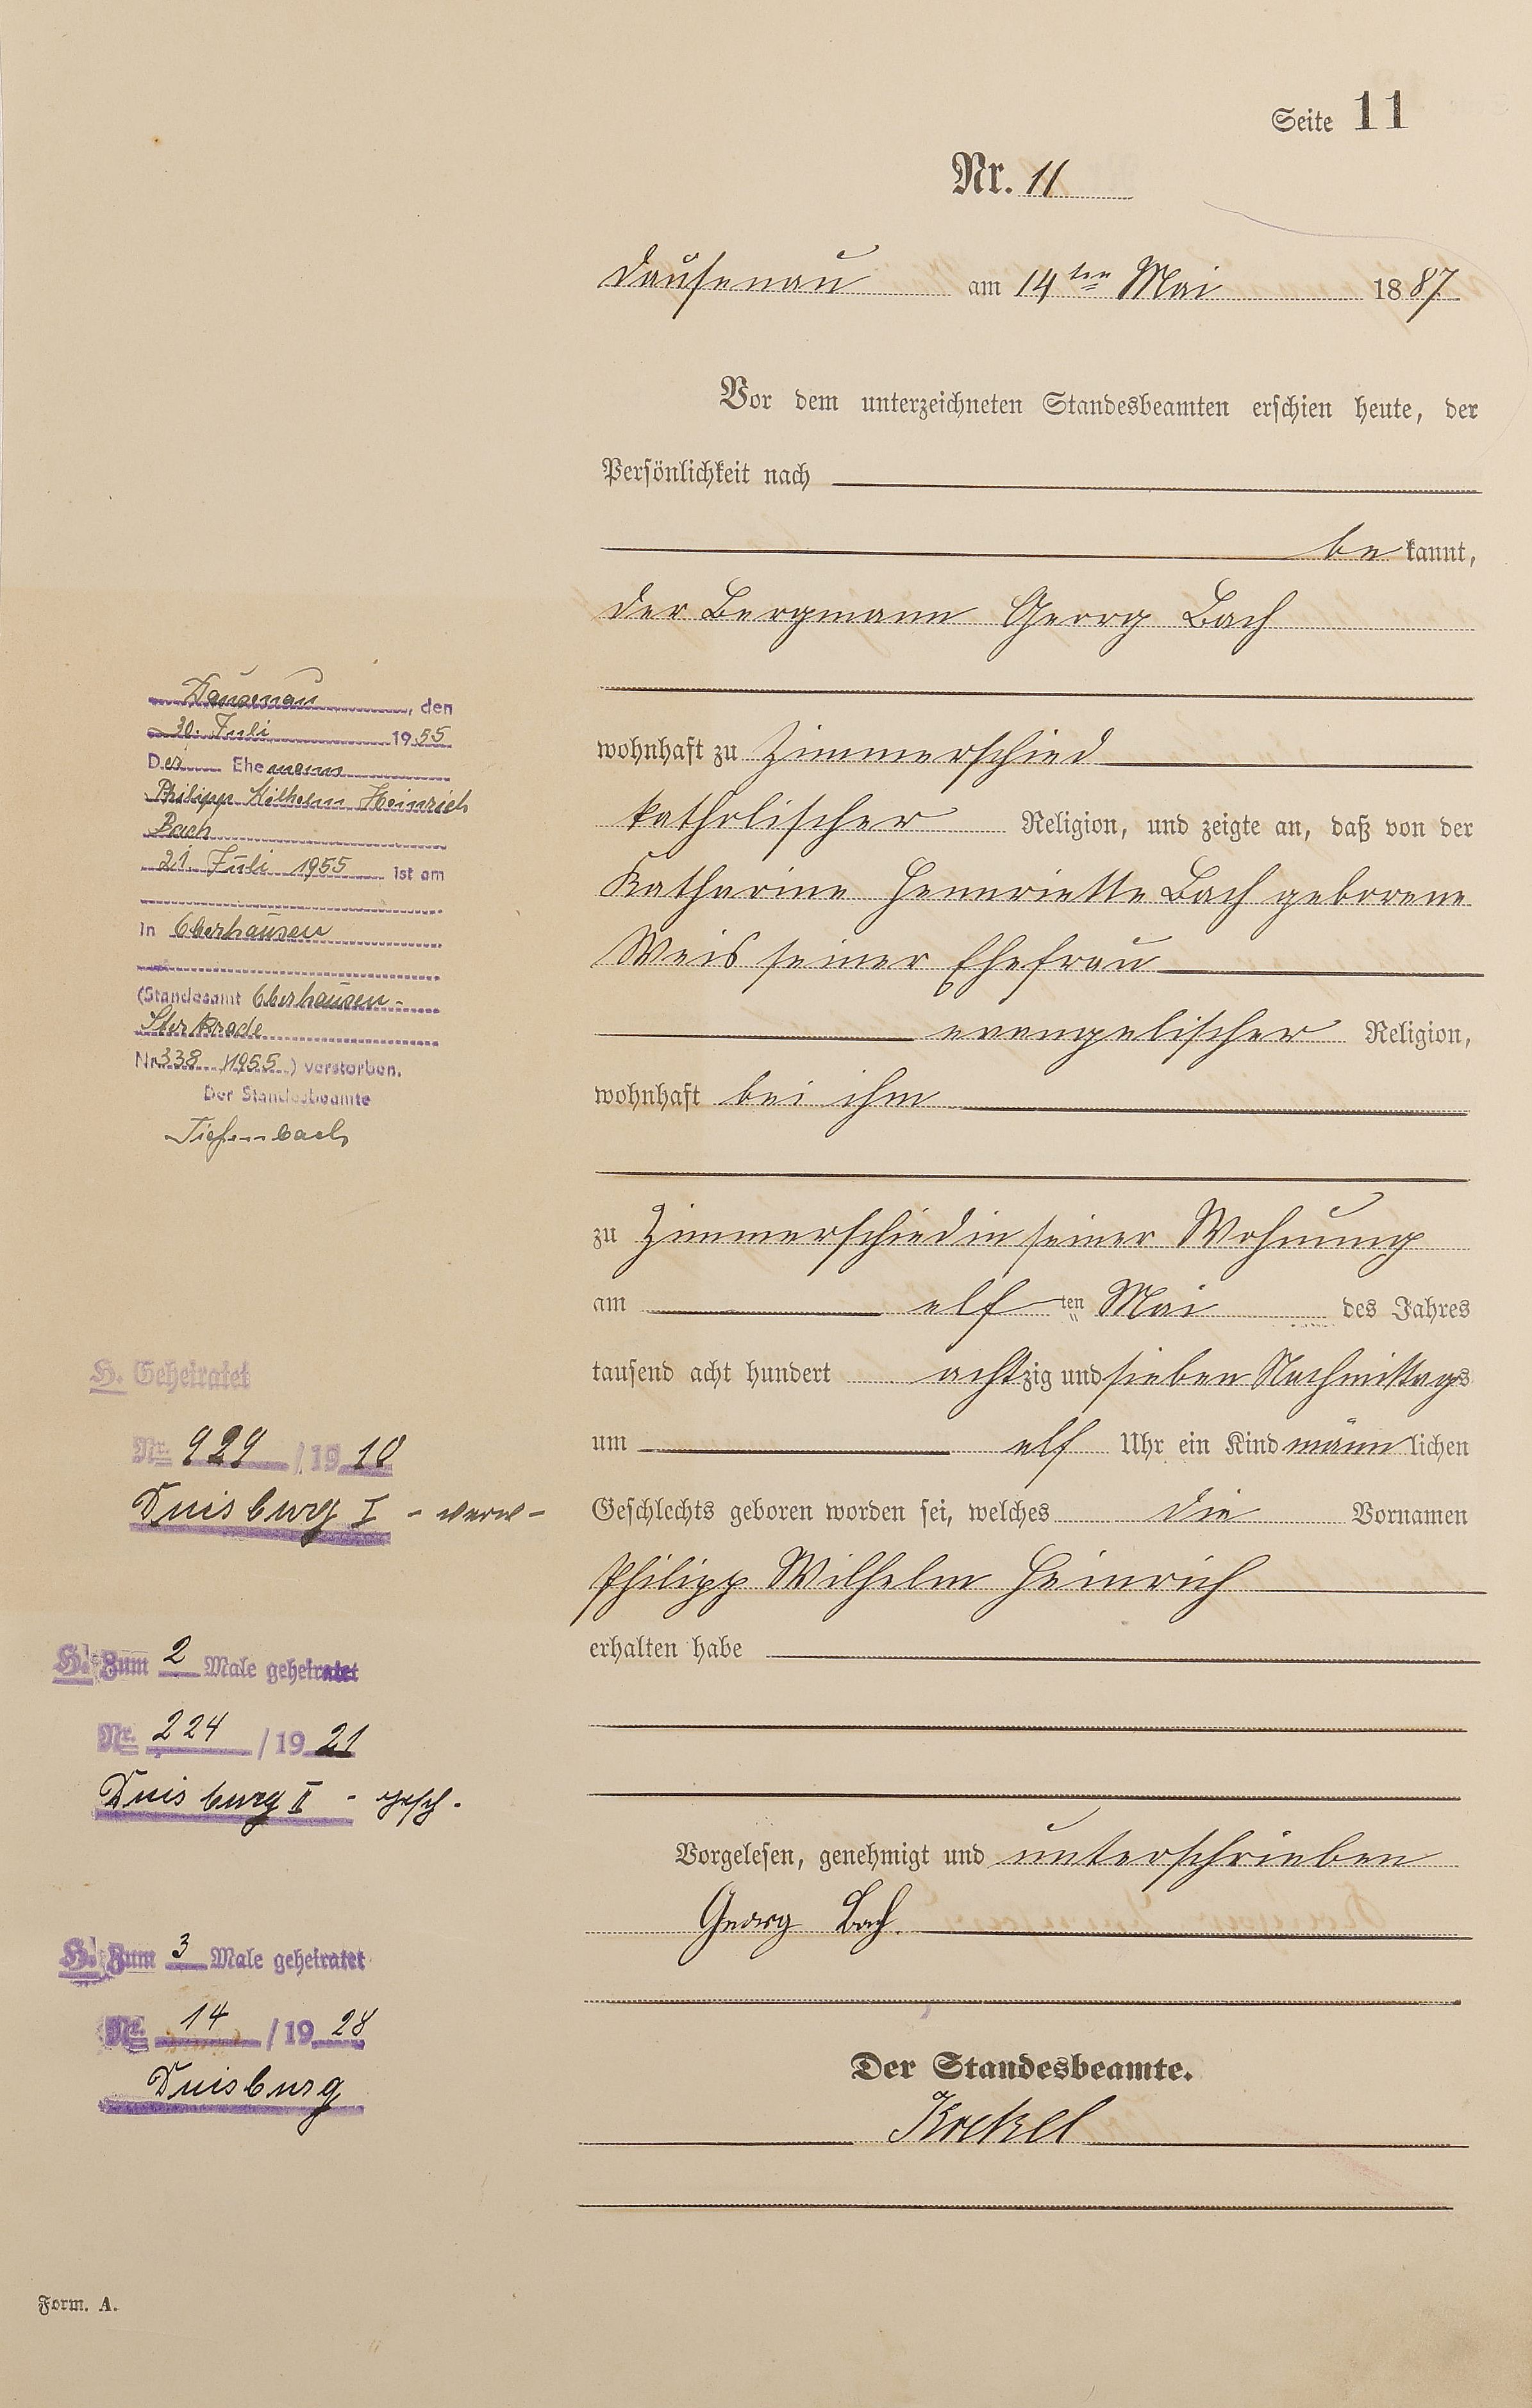 Seite 11
Nr. 11
Dausenau am 14ten Mai 1887
Vor dem unterzeichneten Standesbeamten erschien heute, der
Persönlichkeit nach
be kannt,
der Bergmann Georg Bach
wohnhaft zu Zimmerschied
katholischer Religion, und zeigte an, daß von der
Katharine Henriette Bach geborene
Weis seiner Ehefrau
evangelischer Religion,
wohnhaft bei ihm
zu Zimmerschied in seiner Wohnung
am elf ten Mai des Jahres
tausend acht hundert achtzig und sieben Nachmittags
um elf Uhr ein Kind männlichen
Geschlechts geboren worden sei, welches die Vornamen
Philipp Wilhelm Heinrich
erhalten habe
Vorgelesen, genehmigt und unterschrieben
Georg Bach.
Der Standesbeamte.
Krekel
Dausenau, den
30. Juli 1955
Der Ehemann
Philipp Wilhelm Heinrich
Bach
21. Juli 1955 ist am
in Oberhausen
(Standesamt Oberhausen-
Sterkrade
Nr. 338 /1955) verstorben.
Der Standesbeamte
Tiefenbach
H. Geheiratet
Nr. 929 / 1910
Duisburg I - verw -
H. Zum 2 Male geheiratet
Nr. 224 / 1921
Duisburg II - gesch.
H. Zum 3 Male geheiratet
Nr. 14 / 1928
Duisburg
Form. A.